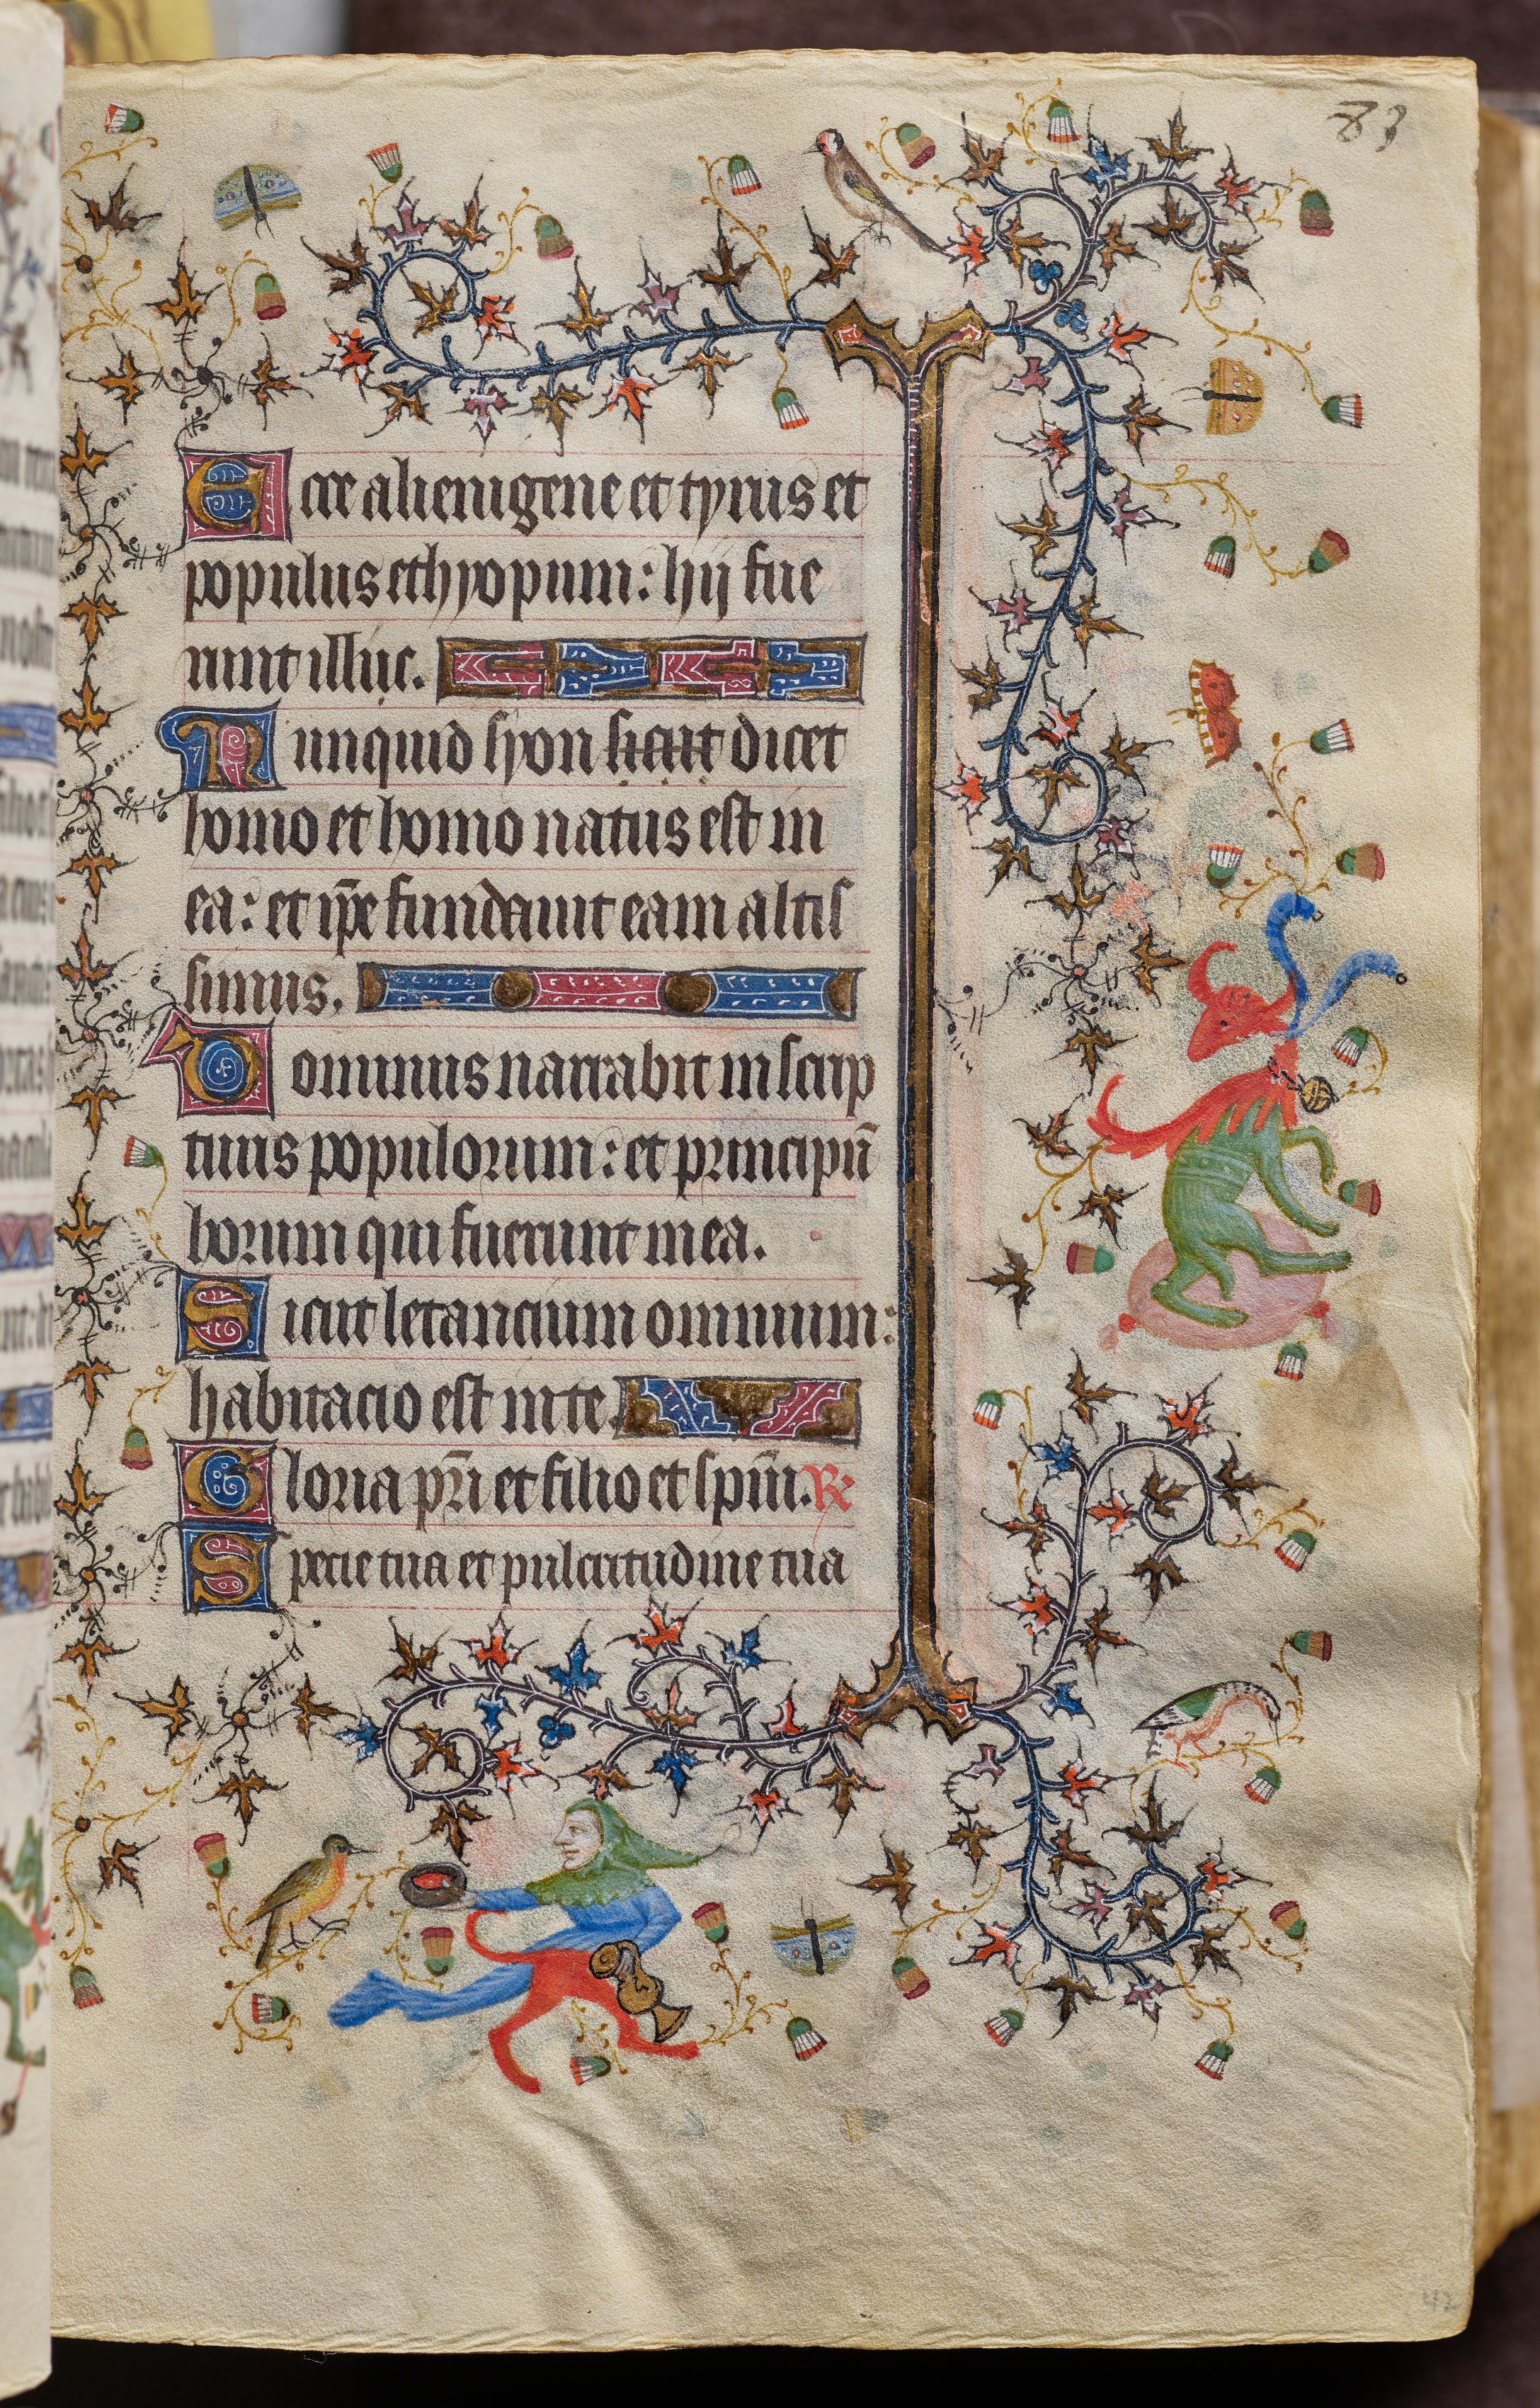 83
Ecce alienigene et tyrus et
populus ethyopum: hij fue
runt illuc.
Nunquid syon sicut dicet
homo et homo natus est in
ea: et ip̄e fundavit eam altis
simus.
Dominus narrabit in scrip
turis populorum: et principū
horum qui fuerunt in ea.
Sicut letancium omnium:
habitacio est in te.
Gloria pr̄i et filio et spiri. R
Specie tua et pulcritudine tua
42